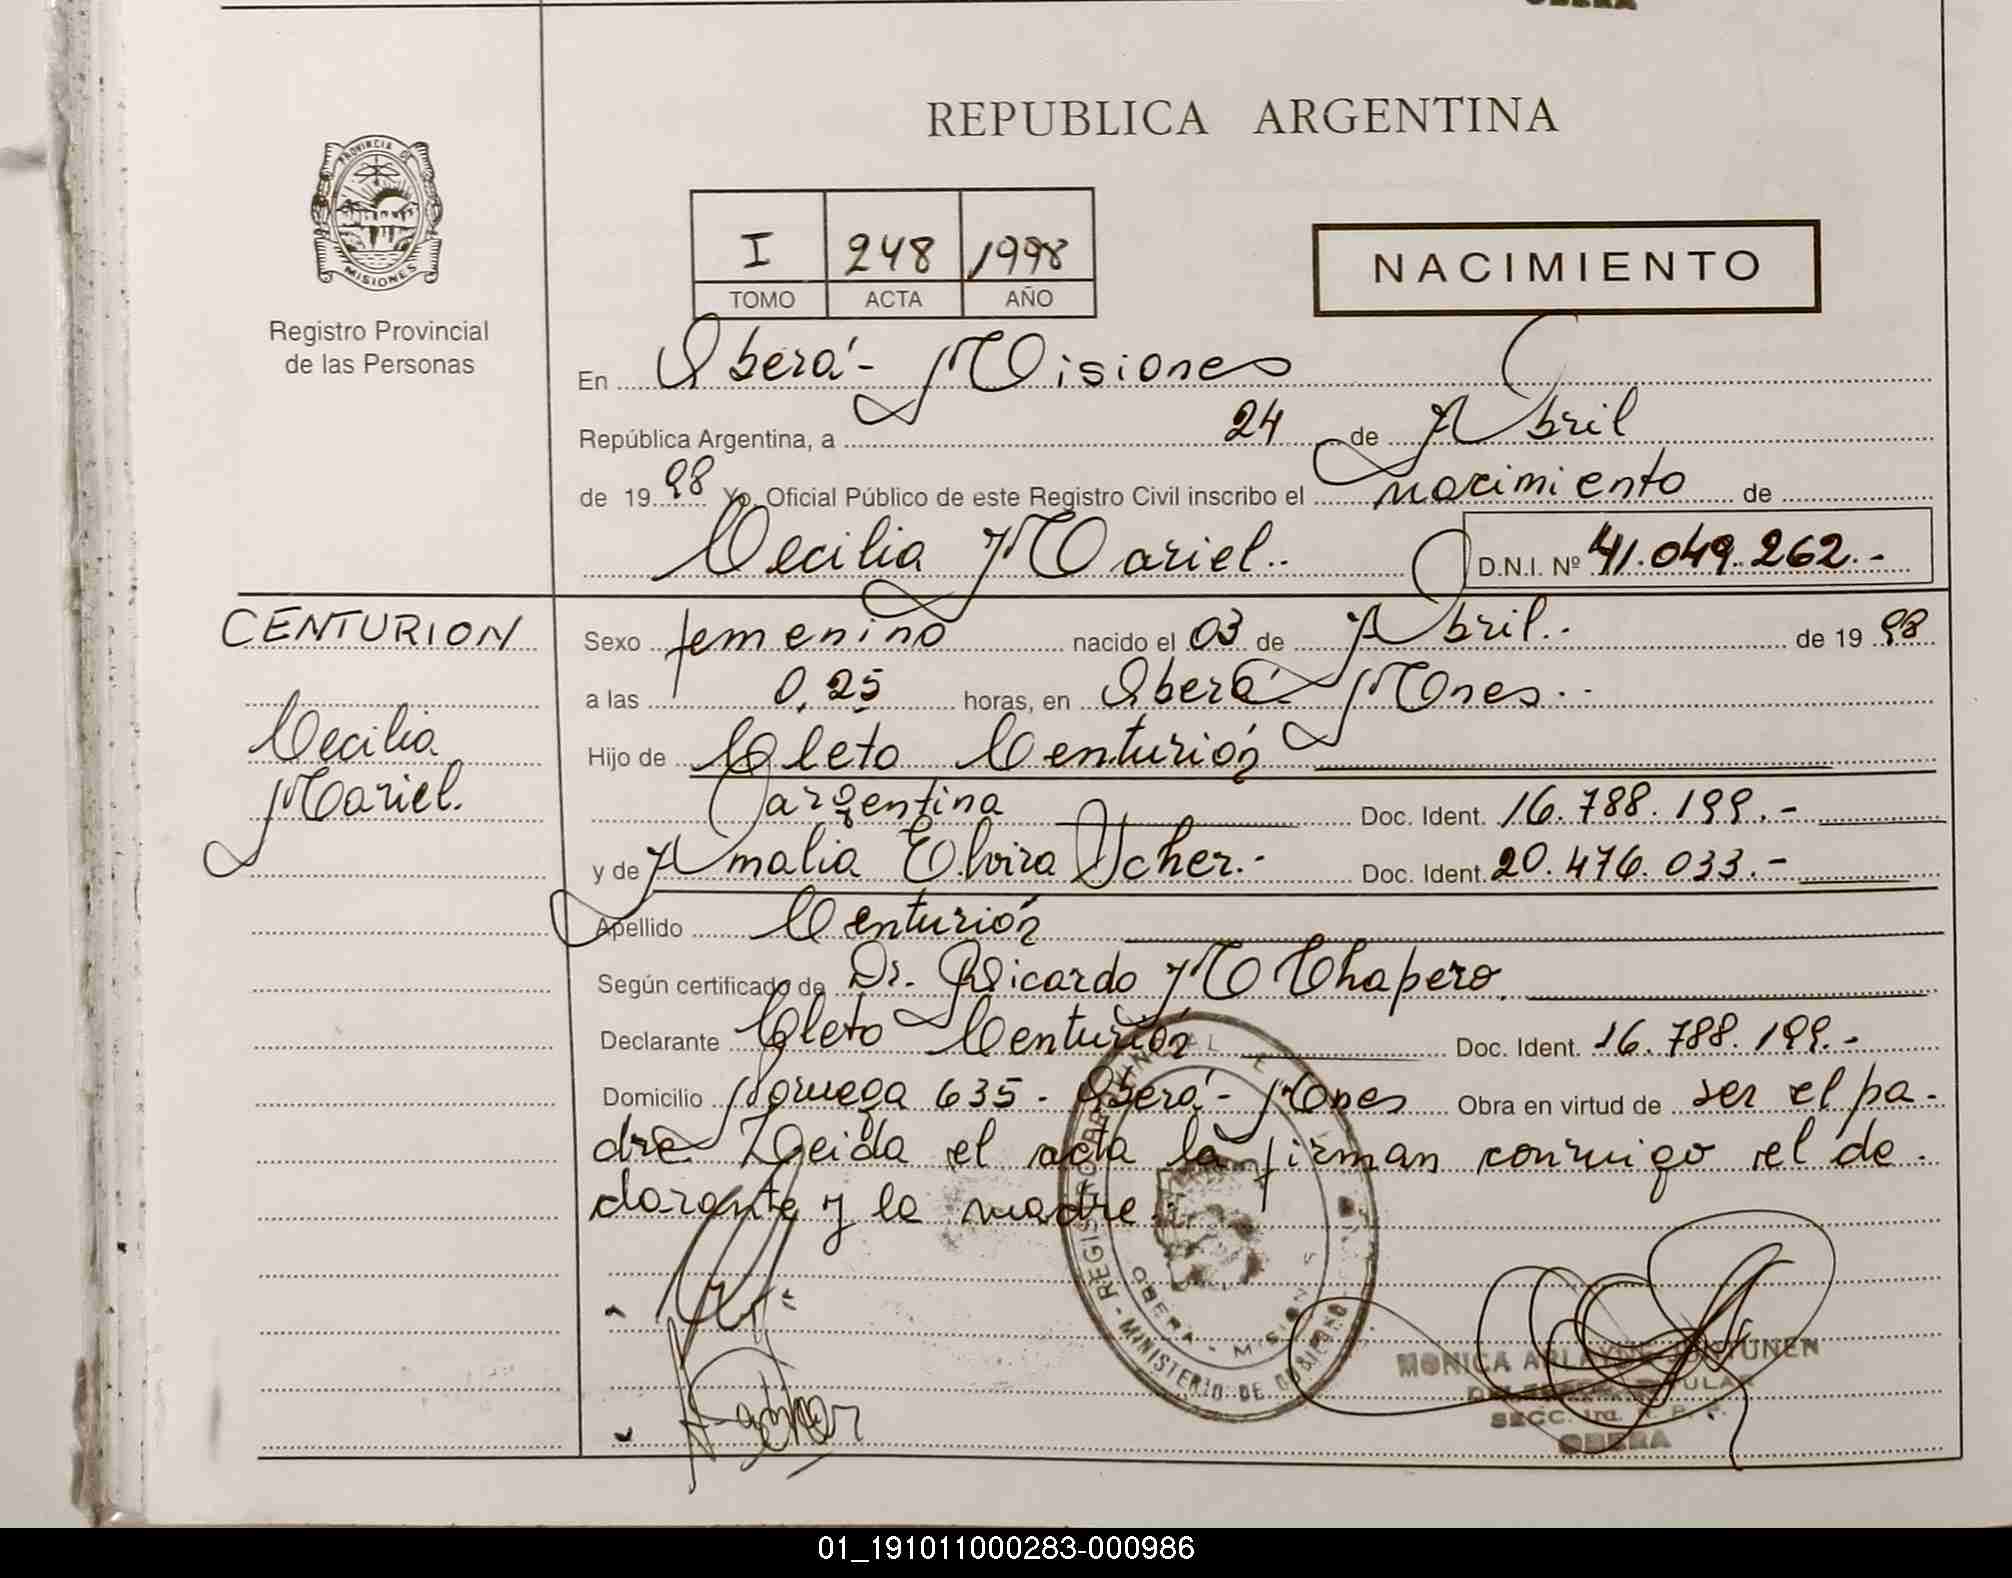 OBERA
REPUBLICA ARGENTINA
PROVINCIA DE
MISIONES
Registro Provincial
de las Personas
I 248 1998
TOMO ACTA AÑO
NACIMIENTO
En Oberá - Misiones
República Argentina, a 24 de Abril
de 19 98 Yo, Oficial Público de este Registro Civil inscribo el nacimiento de
Cecilia Mariel.. D.N.I. Nº 41.049.262.-
CENTURION
Cecilia
Mariel.
Sexo femenino nacido el 03 de Abril.. de 19 98
a las 0,25 horas, en Oberá Mnes..
Hijo de Cleto Centurión
argentina Doc. Ident. 16.788.199.-
y de Amalia Elvira Ucher.- Doc. Ident. 20.476.033.-
Apellido Centurión
Según certificado de Dr. Ricardo M Chapero
Declarante Cleto Centurión Doc. Ident. 16.788.199.-
Domicilio Noruega 635 - Oberá - Mnes Obra en virtud de ser el pa-
dre Leida el acta la firman conmigo el de-
clarante y la madre.-
MINISTERIO DE GOBIERNO
OBERA - MISIONES
MONICA
SECC. 1ra.
OBERA
01_191011000283-000986